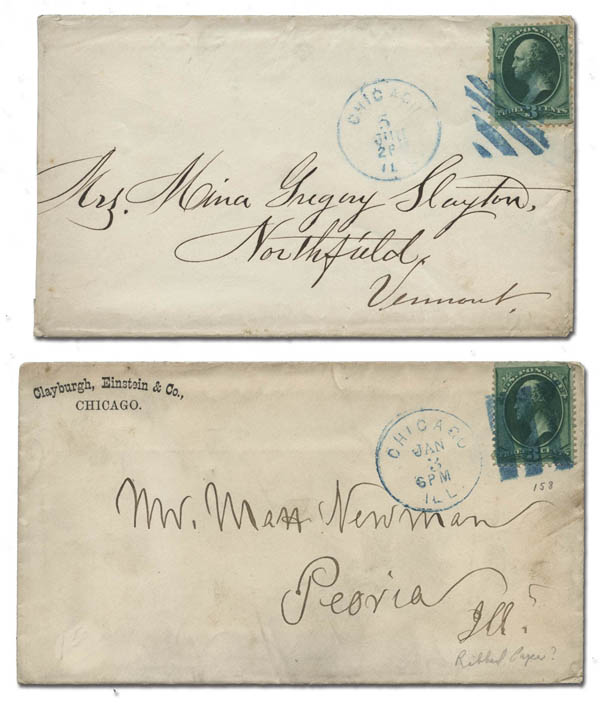 U.S. POSTAGE
THREE 3 CENTS
CHICAGO
5
2P
IL
Mrs. Mina Gregory Slayton,
Northfield,
Vermont.
Clayburgh, Einstein & Co.,
CHICAGO.
U.S. POSTAGE
CHICAGO
JAN
3
6PM
ILL
158
Mr. Matt Newman
Peoria
Ill.
Ribbed Paper?